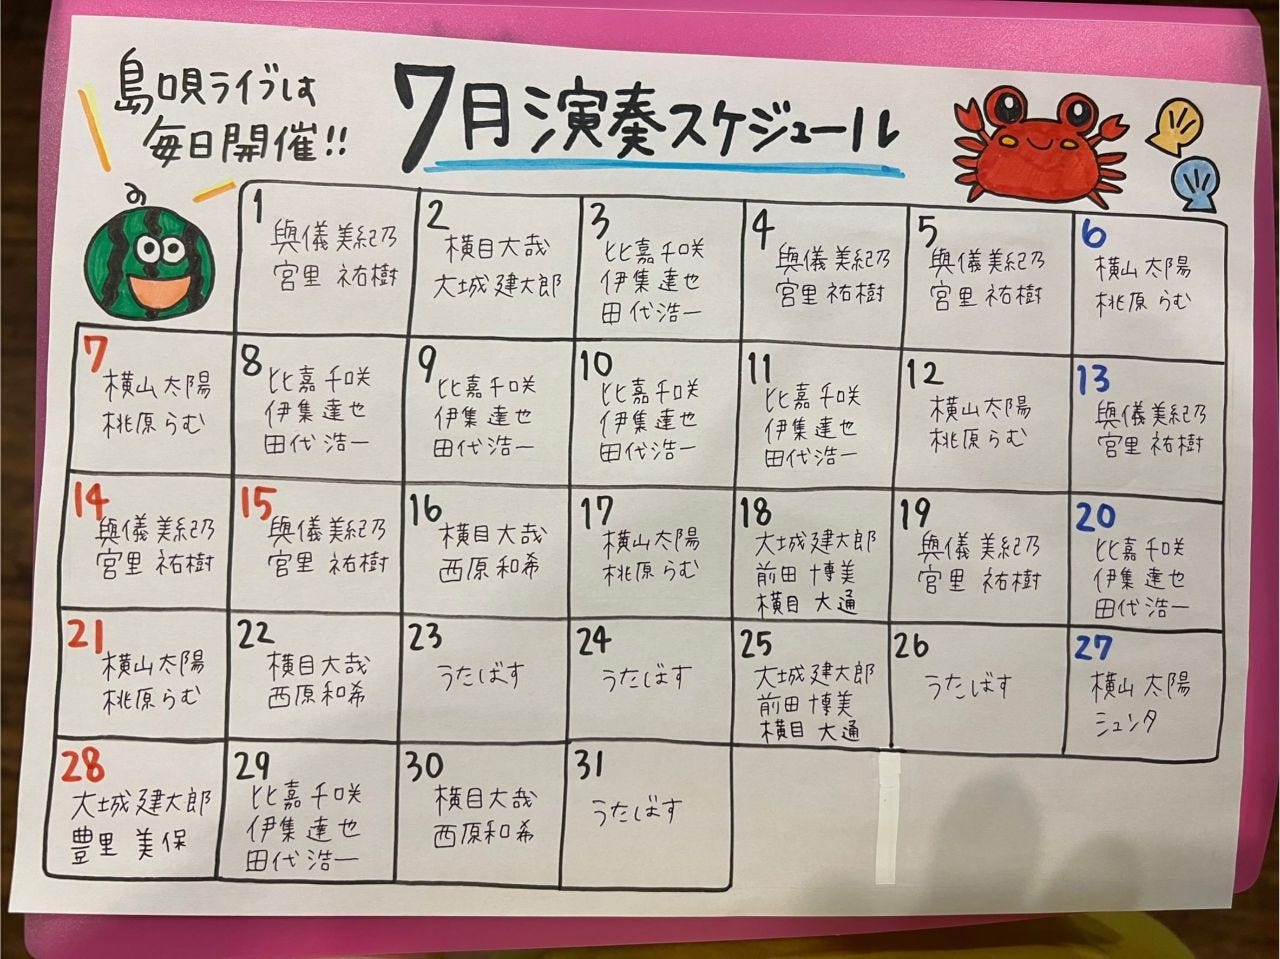 島唄ライブは
毎日開催!!
7月演奏スケジュール
1
與儀 美紀乃
宮里 祐樹
2
横目大哉
大城建太郎
3
比嘉 千咲
伊集 達也
田代 浩一
4
與儀 美紀乃
宮里 祐樹
5
與儀 美紀乃
宮里 祐樹
6
横山 太陽
桃原 らむ
7
横山 太陽
桃原 らむ
8
比嘉 千咲
伊集 達也
田代 浩一
9
比嘉 千咲
伊集 達也
田代 浩一
10
比嘉 千咲
伊集 達也
田代 浩一
11
比嘉 千咲
伊集 達也
田代 浩一
12
横山 太陽
桃原 らむ
13
與儀 美紀乃
宮里 祐樹
14
與儀 美紀乃
宮里 祐樹
15
與儀 美紀乃
宮里 祐樹
16
横目 大哉
西原 和希
17
横山 太陽
桃原 らむ
18
大城 建太郎
前田 博美
横目 大通
19
與儀 美紀乃
宮里 祐樹
20
比嘉 千咲
伊集 達也
田代 浩一
21
横山 太陽
桃原 らむ
22
横目 大哉
西原 和希
23
うたばす
24
うたばす
25
大城 建太郎
前田 博美
横目 大通
26
うたばす
27
横山 太陽
シュンタ
28
大城 建太郎
豊里 美保
29
比嘉 千咲
伊集 達也
田代 浩一
30
横目 大哉
西原 和希
31
うたばす